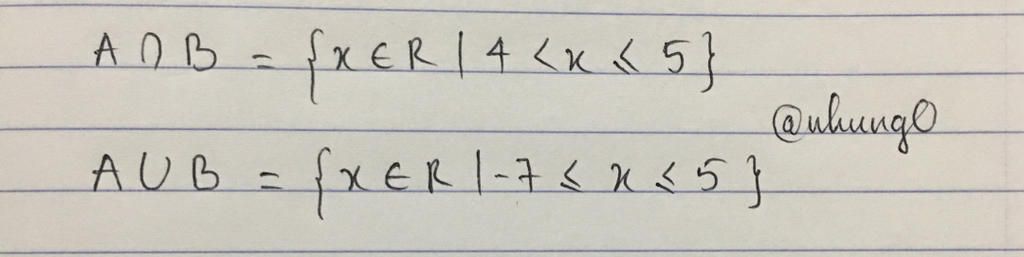 A ∩ B = {x ∈ R | 4 < x ≤ 5}
@nhung0
A ∪ B = {x ∈ R | -7 ≤ x ≤ 5}